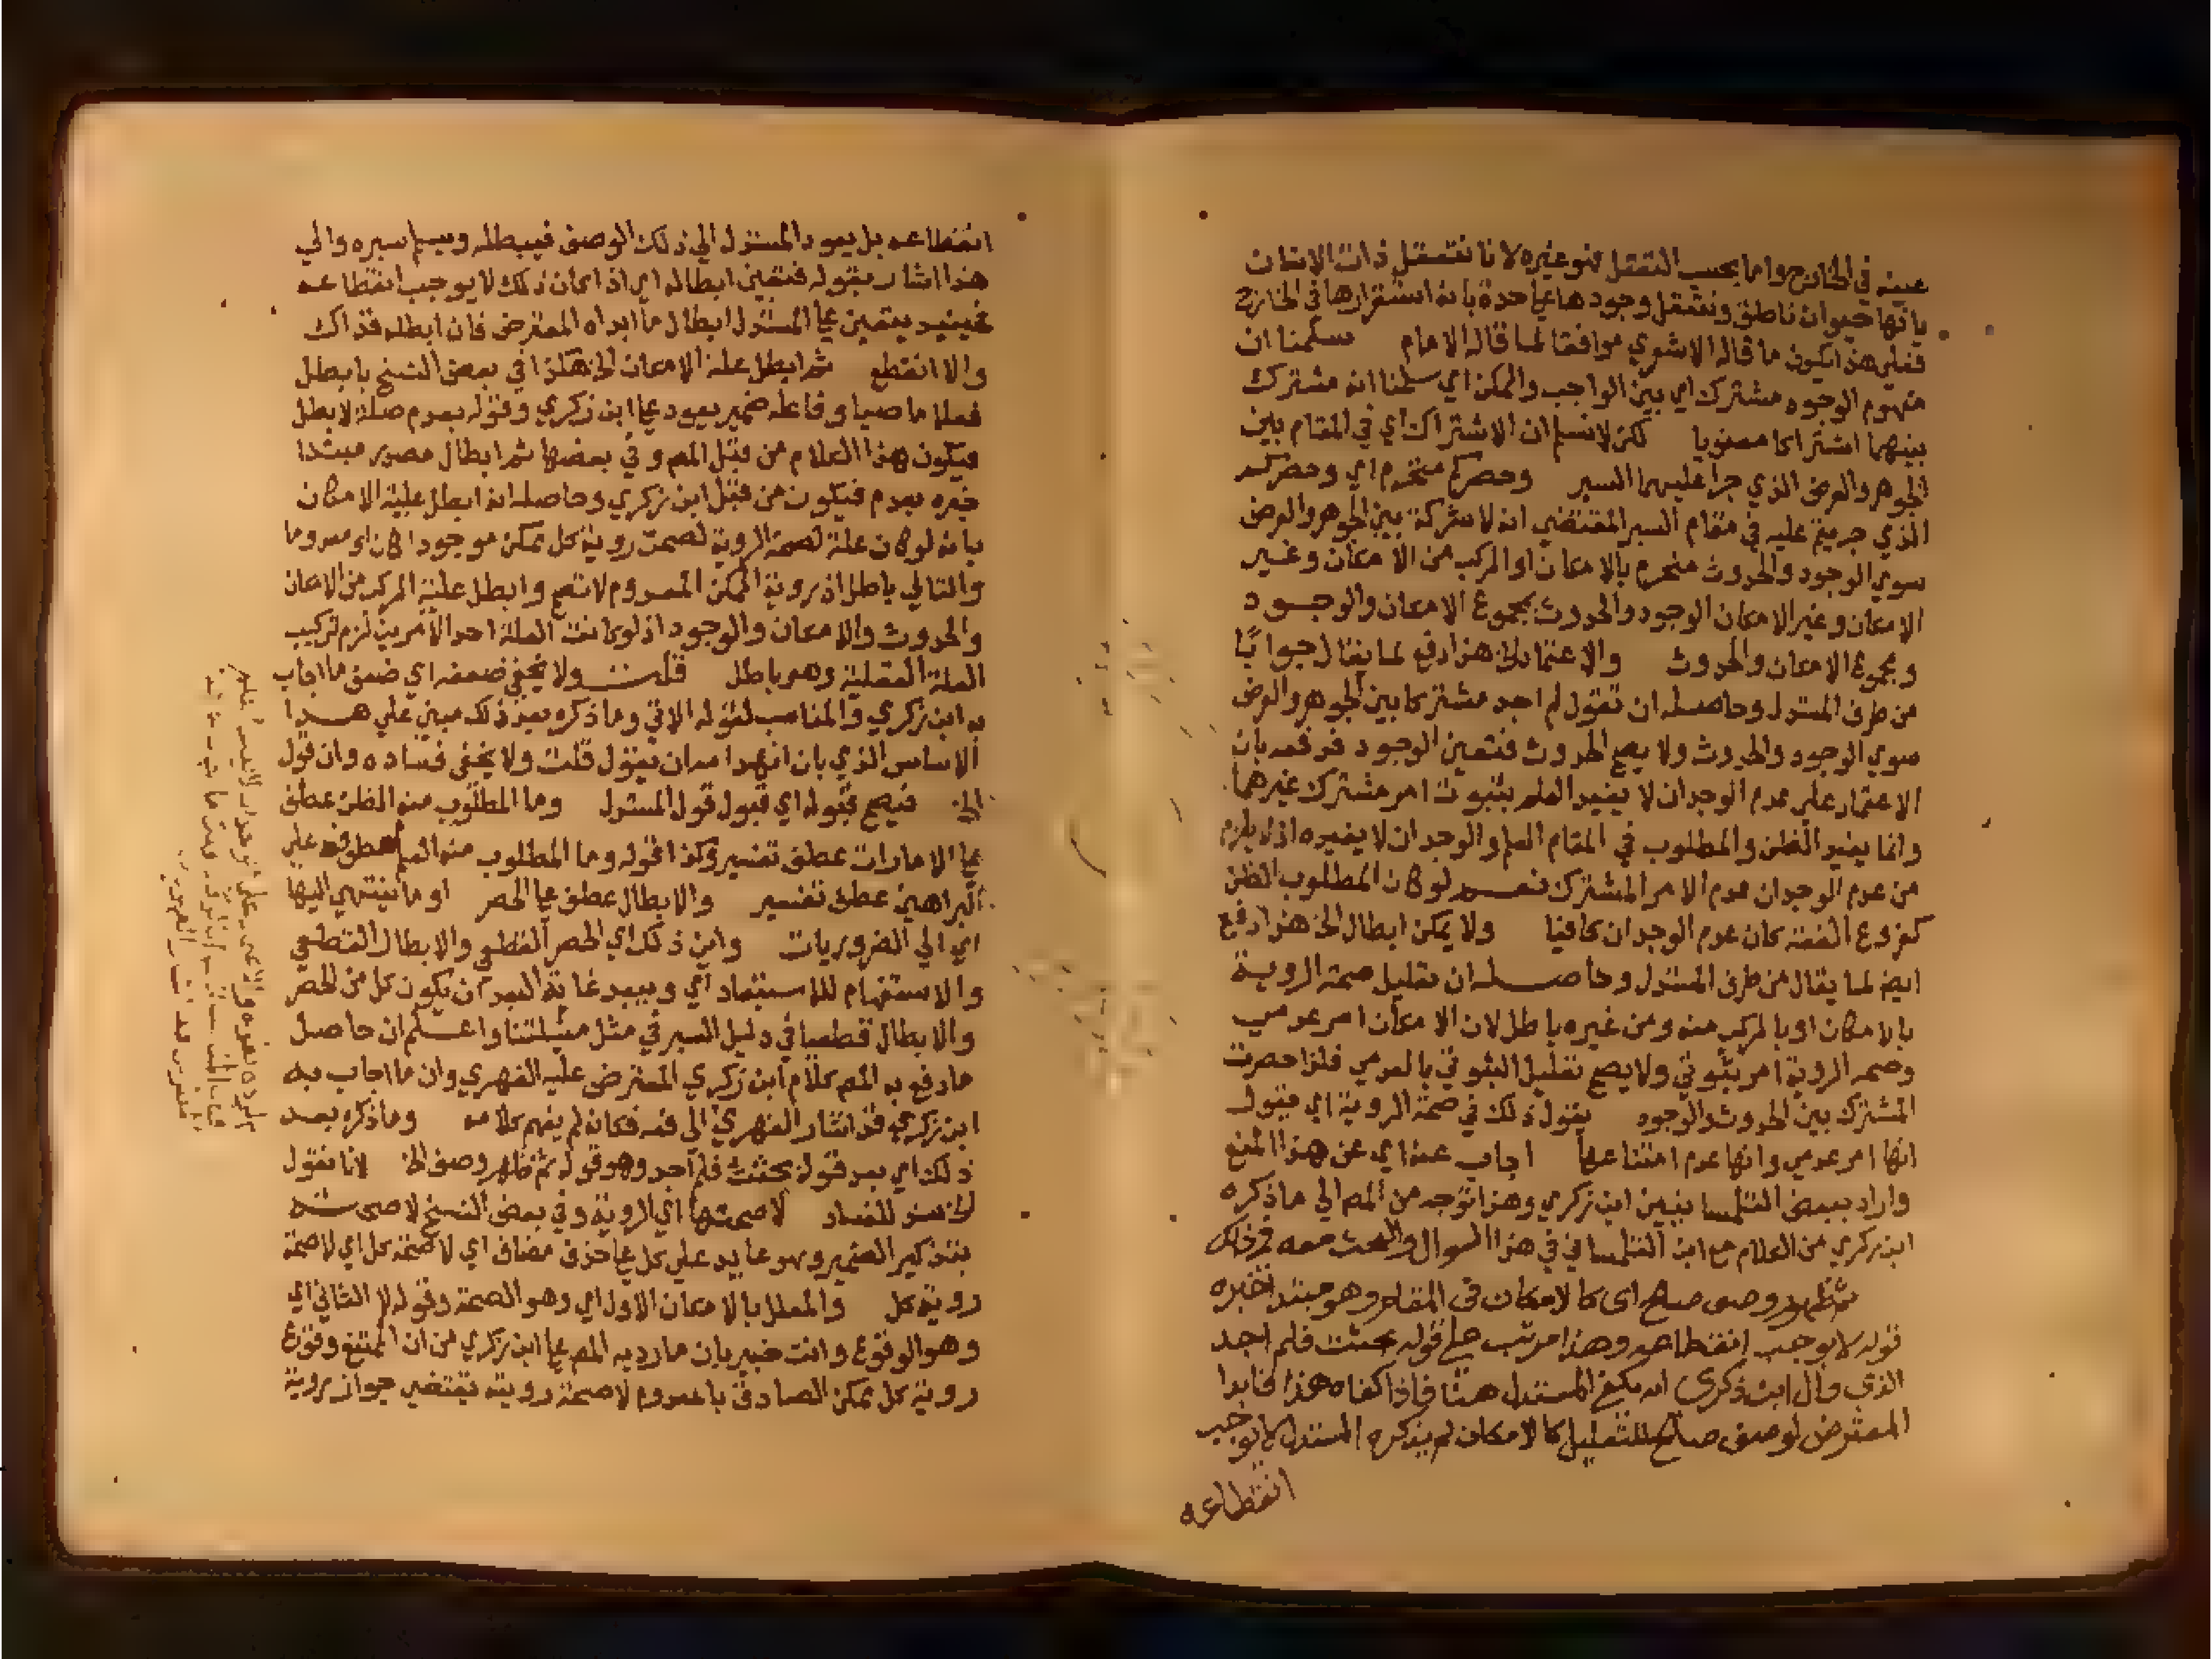 عينه في الخارج واما بحسب التعقل فهو غيره لانا نتعقل ذات الانسان
بانها حيوان ناطق ونتعقل وجودها على حدة بانه استقرارها في الخارج
فعلى هذا يكون ما قاله الاشعري موافقا لما قاله الامام سلمنا ان
مفهوم الوجود مشترك اي بين الواجب والممكن اي سلمنا انه مشترك
بينهما اشتراكا معنويا لكن لا نسلم ان الاشتراك اي في المقام بين
الجوهر والعرض الذي جرا عليهما السبر وحصركم منخرم اي وحصركم
الذي جريتم عليه في مقام السبر المقتضي انه لا شركة بين الجوهر والعرض
سوي الوجود والحدوث منخرم بالامكان او المركب من الامكان وغير
الامكان وغير الامكان الوجود والحدوث بمجموع الامكان والوجود
ومجموع الامكان والحدوث والاعتماد الخ هذا دفع لما يقال جوابا
من طرف المستدل وحاصله ان تقول لم اجد مشتركا بين الجوهر والعرض
سوي الوجود والحدوث ولا يصح الحدوث فتعين الوجود فدفعه بان
الاعتماد علي عدم الوجدان لا يفيد العلم بثبوت امر مشترك غيرهما
وانما يفيد الظن والمطلوب في المقام العلم والوجدان لا يفيده اذ لا يلزم
من عدم الوجدان عدم الامر المشترك نعم لو كان المطلوب الظن
كفروع الفقه كان عدم الوجدان كافيا ولا يمكن ابطال الخ هذا دفع
ايضا لما يقال من طرف المستدل وحاصله ان تعليل صحة الروية
بالامكان او بالمركب منه ومن غيره باطل لان الامكان امر عدمي
وصحة الروية امر ثبوتي ولا يصح تعليل الثبوتي بالعدمي فلذا حصرت
المشترك بين الحدوث والوجود يقول ذلك في صحة الروية اي يقول
انها امر عدمي وانها عدم امتناعها اجاب عنه اي عن هذا المنع
واراد ببعض التلمسانيين ابن زكري وهذا توجه من المص الي ما ذكره
ابن زكري من الكلام مع ابن التلمساني في هذا السوال والبحث معه في ذلك
ثم ظهور وصف صالح اى كالامكان فى المقام وهو مبتدا خبره
قوله لا يوجب انقطاعه وهذا مرتب على قوله بحثت فلم اجد
الذى قال ابن ذكرى انه يكفى المستدل هنا فاذا كفاه هذا فابدا
المعترض لوصف صالح للتعليل كالامكان لم يذكره المستدل لا يوجب
انقطاعه
انقطاعه بل يعود المستدل الي ذلك الوصف فيبطله ويسلم سبره والي
هذا اشار بقوله فتعين ابطاله اي اذا كان ذلك لا يوجب انقطاعه
فحينيذ يتعين على المستدل ابطال ما ابداه المعترض فان ابطله فذاك
والا انقطع ثم ابطل علة الامكان الخ هكذا في بعض النسخ بابطل
فعلا ماضيا وفاعله ضمير يعود على ابن زكري وقوله بعدم صلة لابطل
فيكون هذا الكلام من قبل المص وفي بعضها ثم ابطال مصدر مبتدا
خبره بعدم فيكون من قبل ابن زكري وحاصله انه ابطل علية الامكان
بانه لو كان علة لصحة الروية لصحت روية كل ممكن موجودا كان او معدوما
والتالي باطل اذ روية الممكن المعدوم لا تصح وابطل علية المركب من الامكان
والحدوث والامكان والوجود اذ لو كانت العلة احد الامرين لزم تركيب
العلة العقلية وهو باطل قلت ولا يخفي ضعفه اي ضعف ما اجاب
به ابن زكري والمناسب لقوله الاتي وما ذكره بعد ذلك مبني علي هذا
الاساس الذي بان انهدامه ان يقول قلت ولا يخفي فساده وان قول
الخ فيصح قبوله اي قبول قول المستدل وما المطلوب منه الظن عطف
على الامارات عطف تفسير وكذا قوله وما المطلوب منه العلم عطف علي
البراهين عطف تفسير والابطال عطف على الحصر او ما ينتهي اليها
اي الي الضروريات واين ذلك اي الحصر القطعي والابطال القطعي
والاستفهام للاستبعاد اي وبعيد غاية البعد ان يكون كل من الحصر
والابطال قطعيا في دليل السبر في مثل مسئلتنا واعلم ان حاصل
ما دفع به المص كلام ابن زكري المعترض عليه الفهري وان ما اجاب به
ابن زكري قد اشار الفهري الي دفعه فكانه لم يفهم كلامه وما ذكره بعد
ذلك اي بعد قوله بحثت فلم اجد وهو قوله ثم ظهور وصف الخ لانا نقول
الخ سند للفساد لا صحتها اي الروية وفي بعض النسخ لا صحته
بتذكير الضمير وهو عايد علي كل على حذف مضاف اي لا صحة كل اي لا صحة
روية كل والمعلل بالامكان الاول اي وهو الصحة وقوله لا الثاني اي
وهو الوقوع وانت خبير بان ما رد به المص على ابن زكري من ان الممتنع وقوع
روية كل ممكن الصادق بالمعدوم لا صحة رويته يقتضي جواز روية